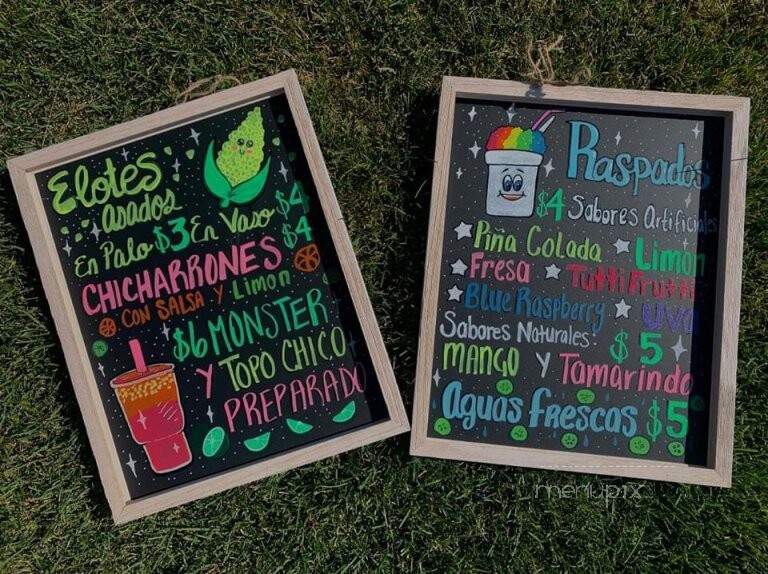 Elotes
asados $4
En Palo $3 En Vaso
CHICHARRONES $4
CON SALSA Y Limon
$6 MONSTER
Y TOPO CHICO
PREPARADO
Raspados
$4 Sabores Artificiales
Piña Colada Limon
Fresa Tutti Frutti
Blue Raspberry Uva
Sabores Naturales: $5
MANGO Y Tamarindo
Aguas frescas $5
menupix